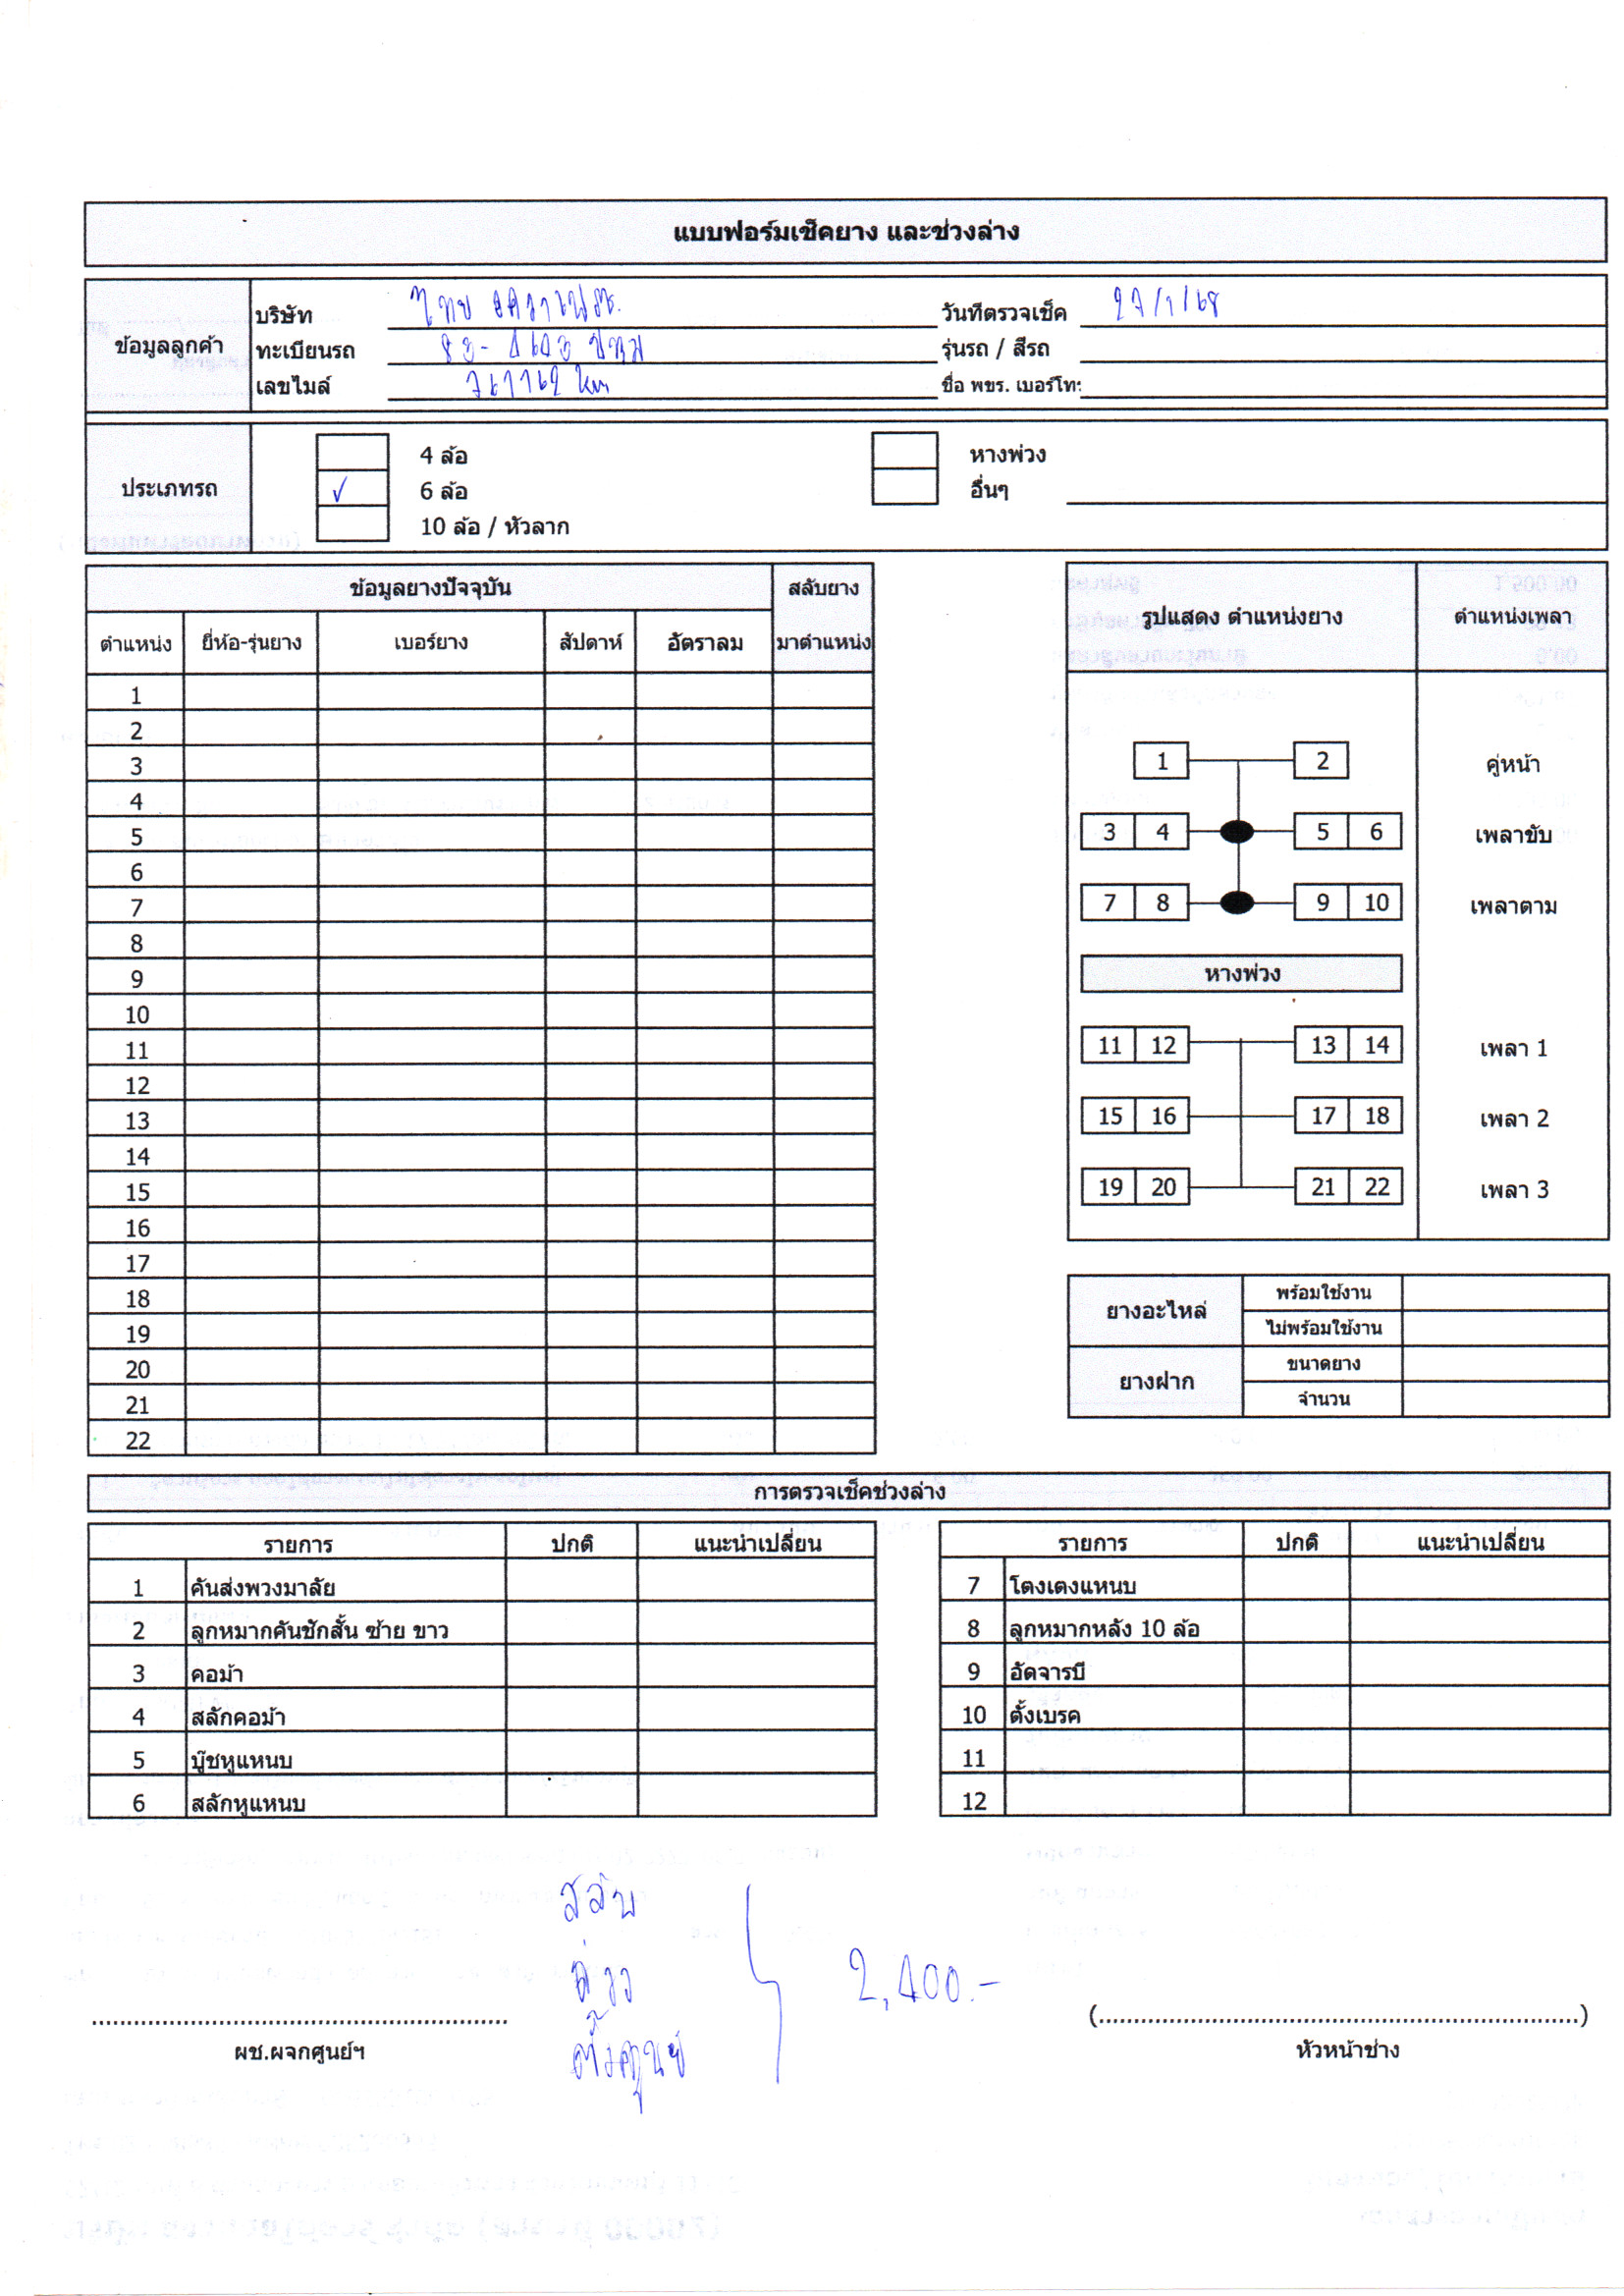 แบบฟอร์มเช็คยาง และช่วงล่าง
ข้อมูลลูกค้า
บริษัท ไทย
วันที่ตรวจเช็ค 27/1/68
ทะเบียนรถ
รุ่นรถ / สีรถ
เลขไมล์ km
ชื่อ พขร. เบอร์โทร
ประเภทรถ
4 ล้อ
หางพ่วง
✓ 6 ล้อ
อื่นๆ
10 ล้อ / หัวลาก
ข้อมูลยางปัจจุบัน สลับยาง
ตำแหน่ง ยี่ห้อ-รุ่นยาง เบอร์ยาง สัปดาห์ อัตราลม มาตำแหน่ง
1
2
3
4
5
6
7
8
9
10
11
12
13
14
15
16
17
18
19
20
21
22
รูปแสดง ตำแหน่งยาง ตำแหน่งเพลา
1 2 คู่หน้า
3 4 5 6 เพลาขับ
7 8 9 10 เพลาตาม
หางพ่วง
11 12 13 14 เพลา 1
15 16 17 18 เพลา 2
19 20 21 22 เพลา 3
ยางอะไหล่ พร้อมใช้งาน
ไม่พร้อมใช้งาน
ยางฝาก ขนาดยาง
จำนวน
การตรวจเช็คช่วงล่าง
รายการ ปกติ แนะนำเปลี่ยน
1 คันส่งพวงมาลัย
2 ลูกหมากคันชักสั้น ซ้าย ขาว
3 คอม้า
4 สลักคอม้า
5 บู๊ชหูแหนบ
6 สลักหูแหนบ
รายการ ปกติ แนะนำเปลี่ยน
7 โตงเตงแหนบ
8 ลูกหมากหลัง 10 ล้อ
9 อัดจารบี
10 ตั้งเบรค
11
12
สลับ
ถ่วง
ตั้งศูนย์
2,400.-
ผช.ผจกศูนย์ฯ
(....................)
หัวหน้าช่าง